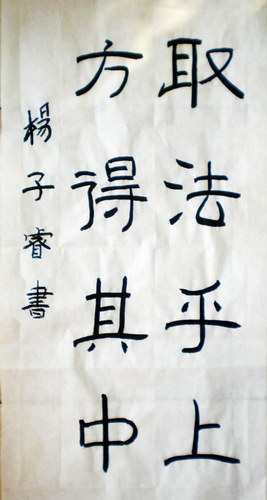 取法乎上
方得其中
楊子睿書